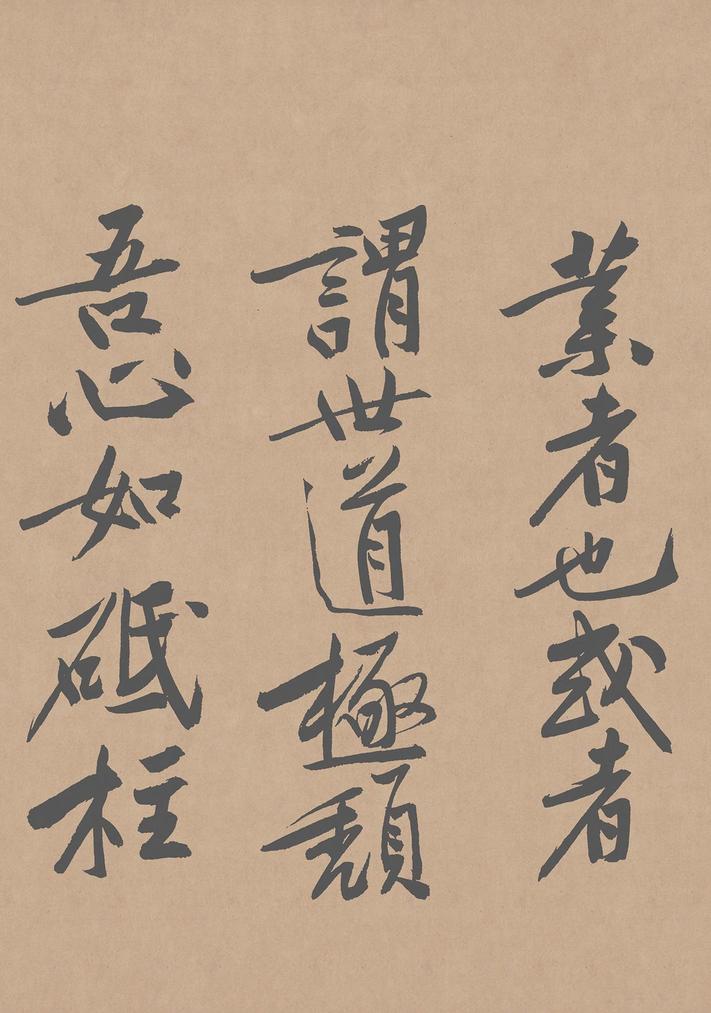 業者也或者
謂世道極頽
吾心如砥柱